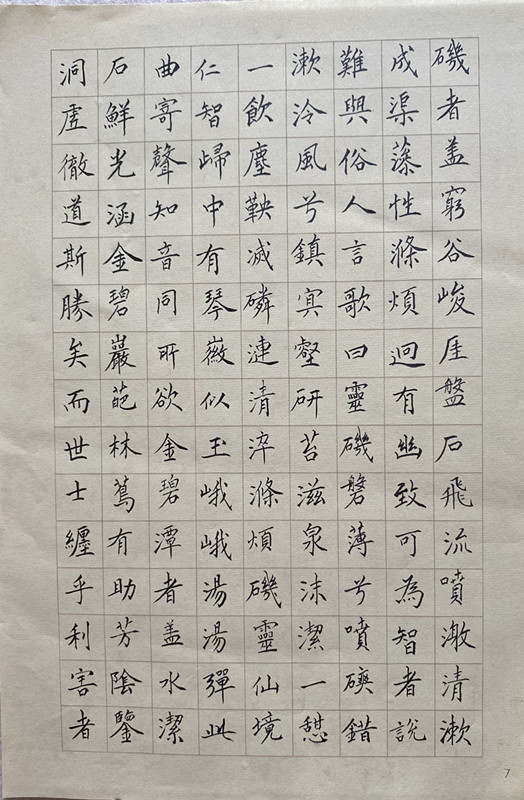 磯者盖窮谷峻厓盤石飛流噴激清漱
成渠藻性滌煩迥有幽致可為智者說
難與俗人言歌曰靈磯磐薄兮噴礇錯
漱泠風兮鎮冥壑研苔滋泉沫潔一憇
一飲塵鞅滅磷漣清淬滌煩磯靈仙境
仁智歸中有琴徽似玉峨峨湯湯彈此
曲寄聲知音同所欲金碧潭者盖水潔
石鮮光涵金碧巖葩林蔦有助芳陰鑒
洞虛徹道斯勝矣而世士纏乎利害者
7